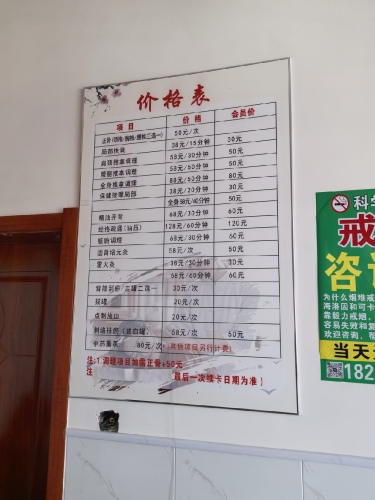 价格表
项目 价格 会员价
正骨(颈椎/胸椎/腰椎三选一) 50元/次
局部快灸 38元/15分钟 30元
肩颈推拿调理 58元/30分钟 50元
腰腿推拿调理 58元/50分钟 50元
全身推拿调理 88元/50分钟 80元
保健按摩局部 38元/20分钟 30元
全身50元/40分钟 50元
精油开背 68元/30分钟 60元
经络疏通(油压) 128元/60分钟 120元
脏腑调理 68元/30分钟 60元
固肾培元灸 58元/30分钟 50元
雷火灸 38元/30分钟 30元
68元/60分钟 60元
背部刮痧/走罐二选一 30元/次
拔罐 20元/次
点刺放血 20元/次
刺络排药(含白罐) 68元/次 50元
中药熏蒸 80元/次
注:1.调理项目如需正骨+50元
注 最后一次续卡日期为准)
科学
戒
咨询
为什么烟难戒
海洛因和可卡
靠毅力戒烟,
容易失败和复
欢迎咨询,帮
当天
182